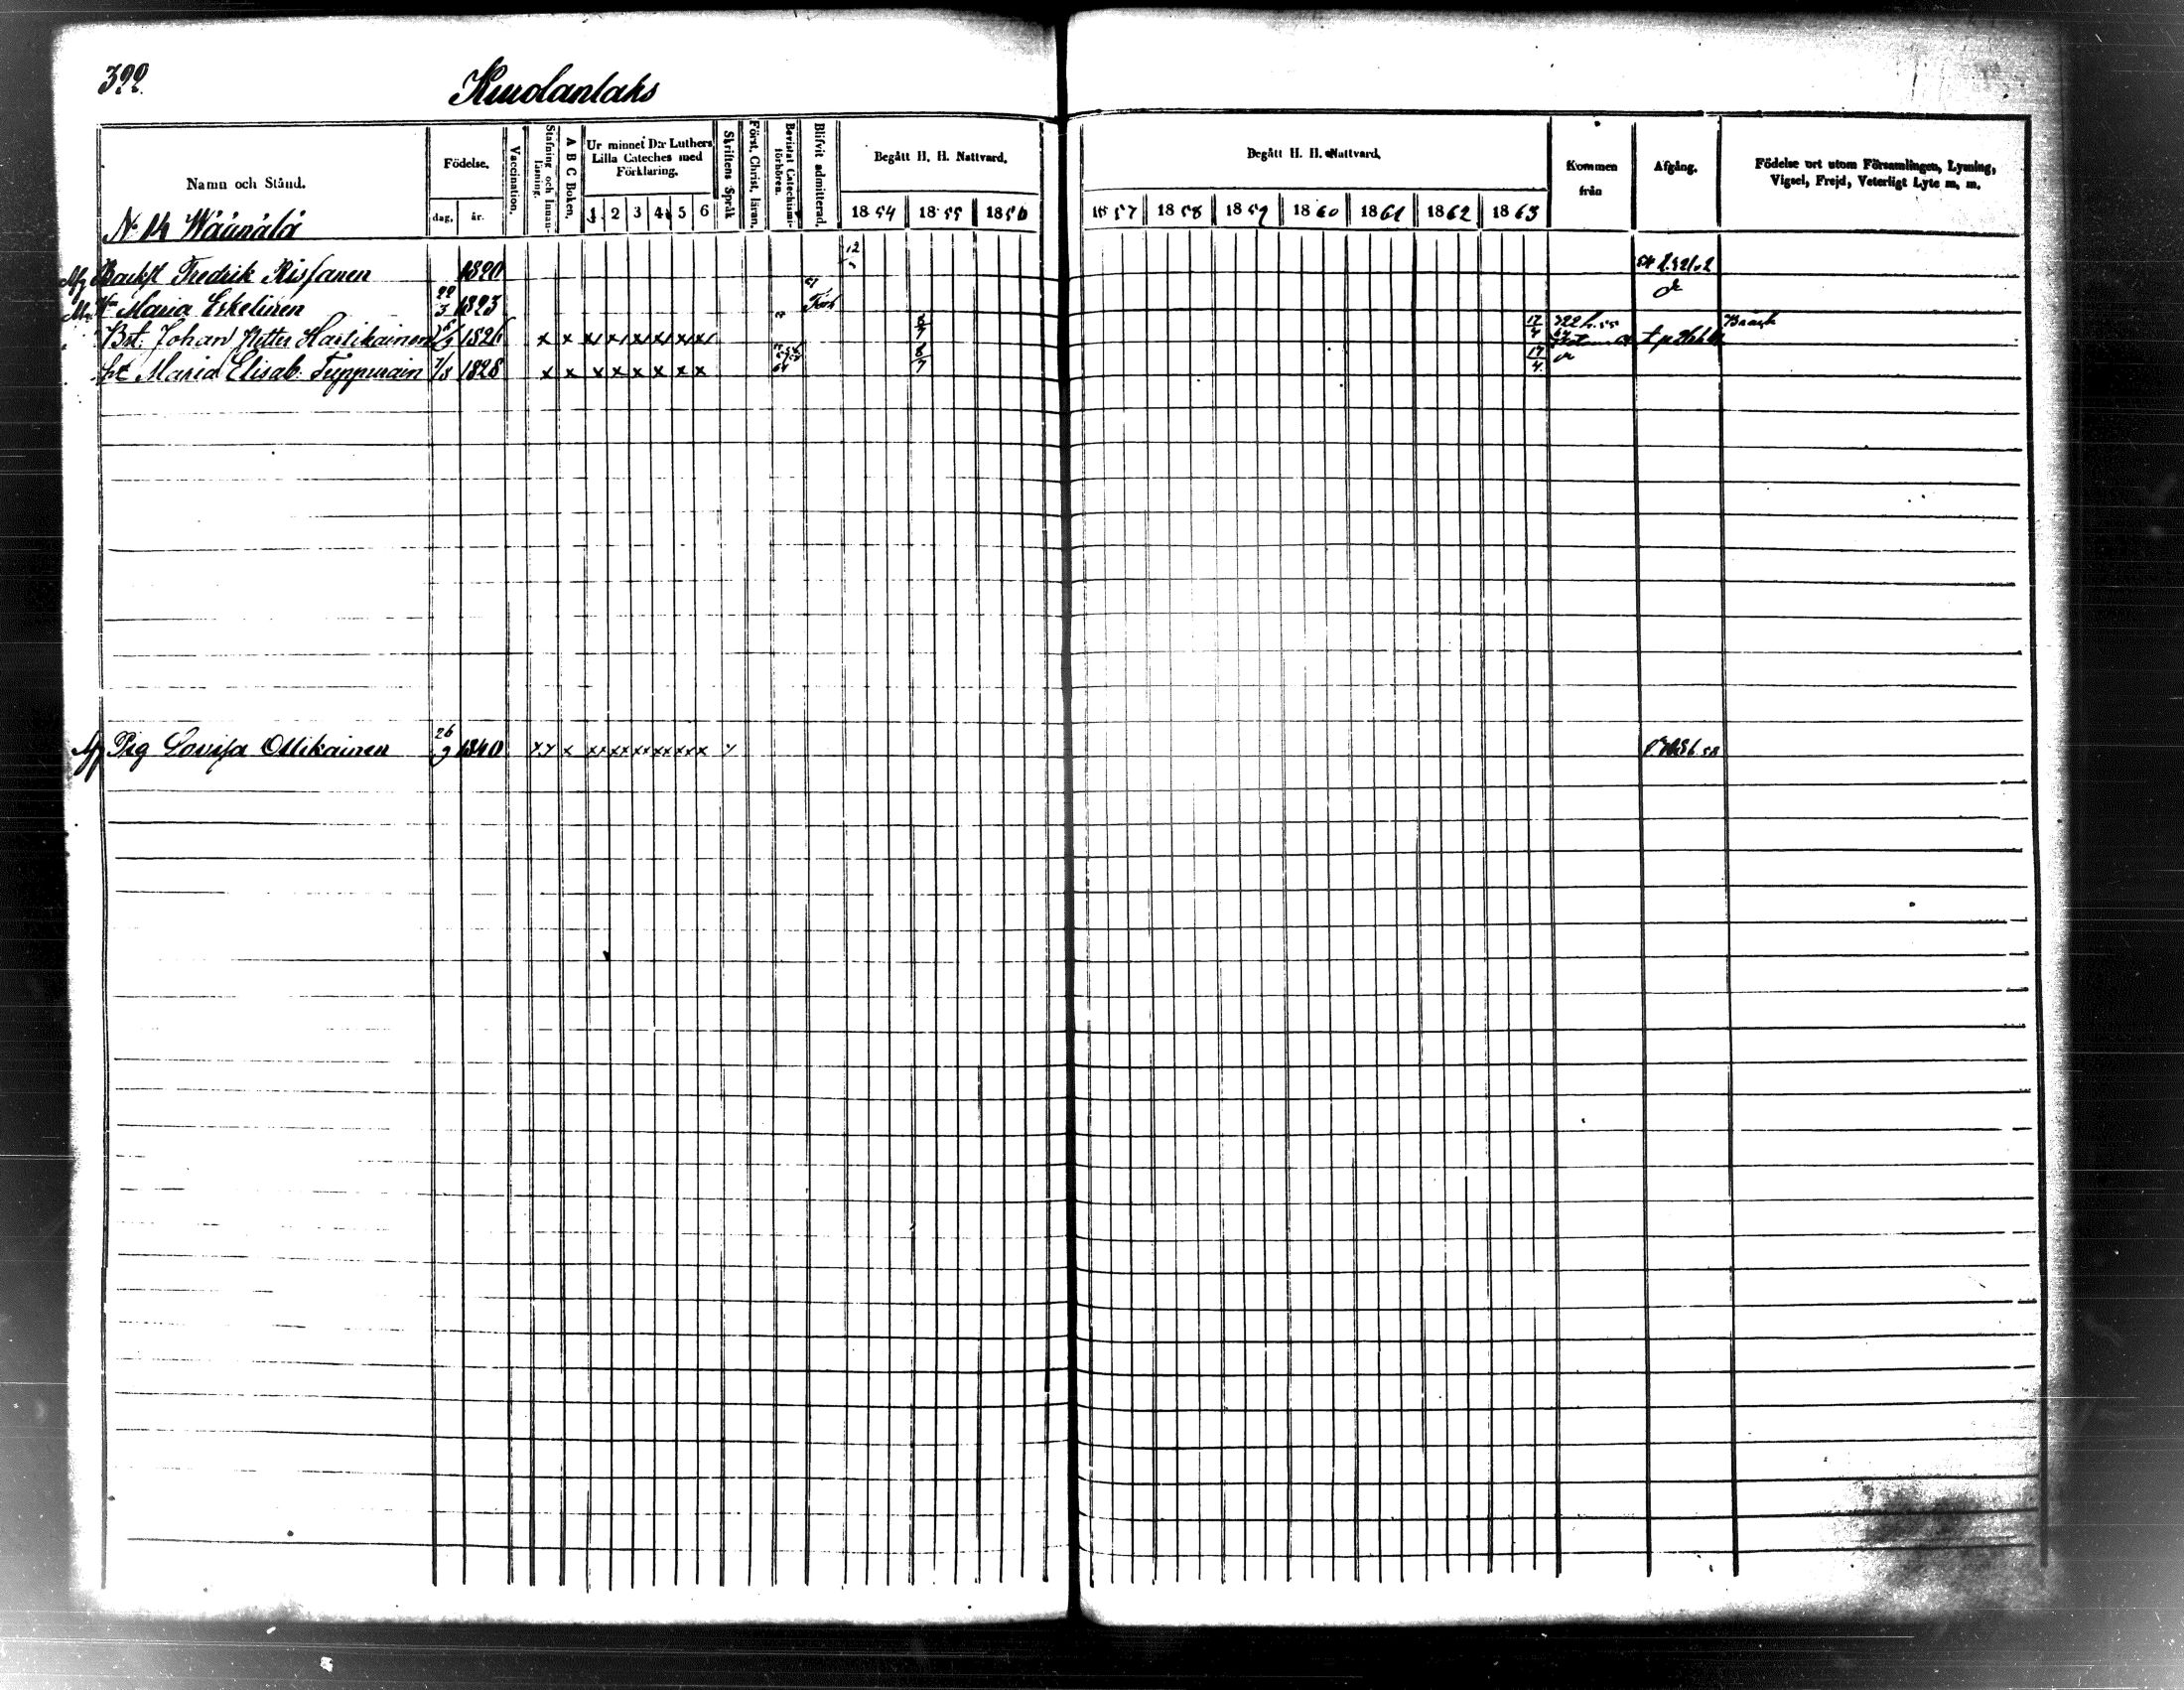 322.
Kuolanlaks
Namn och Stånd.
Födelse.
dag, år.
Vaccination.
Stafning och Innan-läsning.
A B C Boken.
Ur minnet D:r Luthers Lilla Cateches med Förklaring.
1. 2 3 4 5 6
Skriftens Språk
Först. Christ. läran.
Bevistat Catechismi-förhören.
Blifvit admitterad.
Begått H. H. Nattvard.
1854 1855 1856
Begått H. H. Nattvard.
1857 1858 1859 1860 1861 1862 1863
Kommen från
Afgång.
Födelse ort utom Församlingen, Lysning, Vigsel, Frejd, Veterligt Lyte m. m.
N:o 14 Wäänälä
Fredrik Rissanen 1820 12
Maria Eskelinen 22/3 1823
Bst. Johan Petter Hartikainen 1826 x x x x x x x x 8/7 17/4
Maria Elisab. Tuppurain 7/8 1828 x x x x x x x x 8/7 17/4
Pig Lovisa Ollikainen 26/9 1840 x x x xx xx xx xx xx x